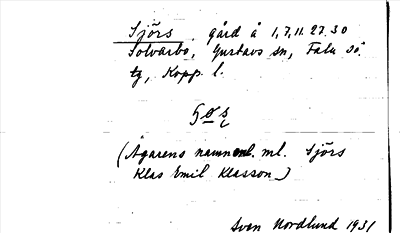 Sjörs, gård å 1,7,11.27.30
Solvarbo, Gustavs sn, Falu sö.
tg, Kopp. l.
(Ägarens namn enl. ml. Sjörs
Klas Emil Klasson.)
Sven Nordlund 1931